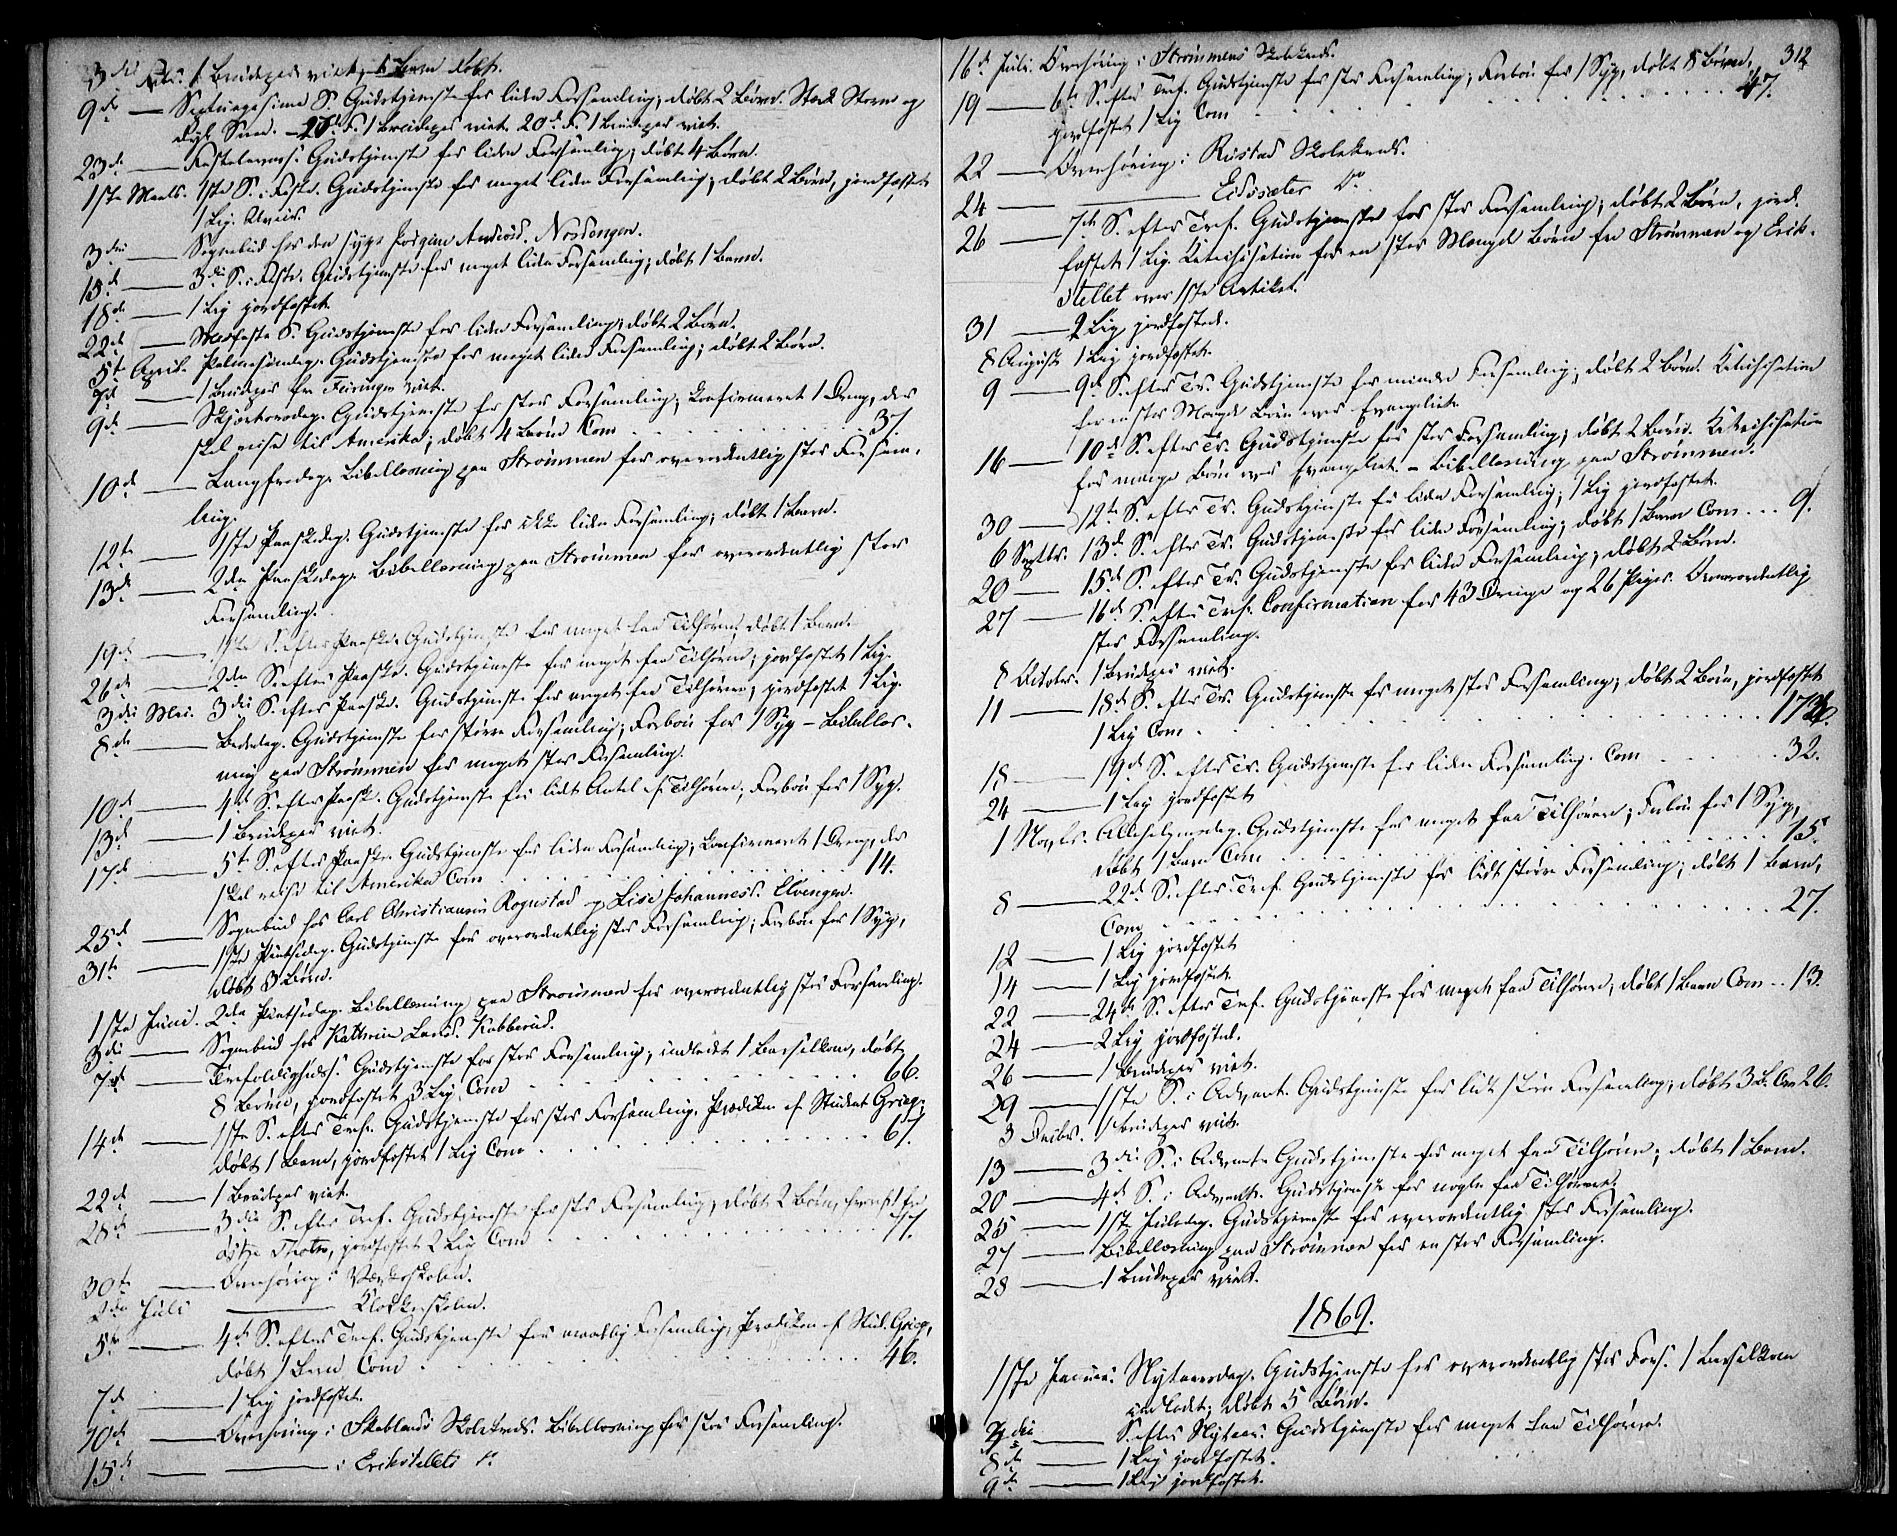 3die Febr. 1 Brudepar viet, 1 Barn døbt.
9de — Septuagesima S. Gudstjeneste for liden Forsamling; døbt 2 Børn. Stærk Storm og
dyb Snee. – 1 Brudepar viet. 20de F. 1 Brudepar viet.
23de — Fastelavnss. Gudstjeneste for liden Forsamling; døbt 4 Børn.
1ste Marts. 1ste S. i Faste. Gudstjeneste for meget liden Forsamling; døbt 2 Børn, jordfæstet
1 Lig.
3die — Sognebud hos den syge Jørgen Nordengen.
15de — 3die S. i Faste. Gudstjeneste for meget liden Forsamling; døbt 1 Barn.
18de — 1 Lig jordfæstet.
22de — Midfaste S. Gudstjeneste for liden Forsamling; døbt 2 Børn.
5te April. Palmesøndag. Gudstjeneste for meget liden Forsamling; døbt 2 Børn.
7de — 1 Brudepar fra Feiringen viet.
9de — Skjærtorsdag. Gudstjeneste for stor Forsamling; Confirmeret 1 Dreng, der
skal reise til Amerika; døbt 4 Børn Com . . . 37.
10de — Langfredag. Bibellæsning paa Strømmen for overordentlig stor Forsam-
ling.
12te — 1ste Paaskedag. Gudstjeneste for ikke liden Forsamling; døbt 1 Barn.
13de — 2den Paaskedag. Bibellæsning paa Strømmen for overordentlig stor
Forsamling.
19de — 1ste S. efter Paaske. Gudstjeneste for meget faa Tilhørere; døbt 1 Barn.
26de — 2den S. efter Paaske. Gudstjeneste for meget faa Tilhørere; jordfæstet 1 Lig.
3die Mai. 3die S. efter Paaske. Gudstjeneste for meget faa Tilhørere; jordfæstet 1 Lig.
8de — Bededag. Gudstjeneste for større Forsamling; Forbøn for 1 Syg – Bibellæs-
ning paa Strømmen for meget stor Forsamling.
10de — 4de S. efter Paaske. Gudstjeneste for lidet Antal af Tilhørere; Forbøn for 1 Syg.
13de — 1 Brudepar viet.
17de — 5te S. efter Paaske. Gudstjeneste for liden Forsamling; Confirmeret 1 Dreng, der
skal reise til Amerika Com . . . 14.
25de — Sognebud hos Carl Christiansen Rognstad og Lise Johannesd. Elvengen.
31te — 1ste Pintsedag. Gudstjeneste for overordentlig stor Forsamling; Forbøn for 1 Syg,
døbt 3 Børn.
1ste Juni. 2den Pintsedag. Bibellæsning paa Strømmen for overordentlig stor Forsamling.
3die — Sognebud hos Kathrine Larsd. Kabberud.
7de — Trefoldighedss. Gudstjeneste for stor Forsamling, indledt 1 Barselkone, døbt
8 Børn, jordfæstet 3 Lig, Com . . . 66.
14de — 1ste S. efter Tref. Gudstjeneste for stor Forsamling, Prædiken af Student Grieg;
døbt 1 Barn, jordfæstet 1 Lig Com . . . 67.
22de — 1 Brudepar viet.
28de — 3die S. efter Tref. Gudstjeneste for stor Forsamling, døbt 2 Børn,
jordfæstet 2 Lig Com . . . 77.
30te — Overhøring i Værkeskolen.
2den Juli — Klokkerskolen.
5te — 4de S. efter Tref. Gudstjeneste for maadelig Forsamling, Prædiken af Stud. Grieg,
døbt 1 Barn Com . . . 46.
7de — 1 Lig jordfæstet.
10de — Overhøring i Skolekreds. Bibellæsning for stor Forsamling.
15de — — i Erikstellets do.
16de Juli. Overhøring i Strømmens Skolekreds. 312
19 — 6te S. efter Tref. Gudstjeneste for stor Forsamling; Forbøn for 1 Syg, døbt 8 Børn,
jordfæstet 1 Lig Com . . . 47.
22 — Overhøring i Rustad Skolekreds.
24 — — Eidssæter do.
26 — 7de S. efter Tref. Gudstjeneste for stor Forsamling; døbt 2 Børn, jord-
fæstet 1 Lig. Katechisation for en stor Mængde Børn fra Strømmen og Erik-
stellet over 1ste Artikel.
31 — 2 Lig jordfæstede.
8 August 1 Lig jordfæstet.
9 — 9de S. efter Tr. Gudstjeneste for mindre Forsamling; døbt 2 Børn. Katechisation
for en stor Mængde Børn over Evangeliet.
16 — 10de S. efter Tr. Gudstjeneste for stor Forsamling; døbt 2 Børn. Katechisation
for mange Børn over Evangeliet. – Bibellæsning paa Strømmen.
30 — 12te S. efter Tr. Gudstjeneste for liden Forsamling; 1 Lig jordfæstet.
6 Septbr. 13de S. efter Tr. Gudstjeneste for liden Forsamling; døbt 1 Barn Com . . . 9.
20 — 15de S. efter Tr. Gudstjeneste for liden Forsamling; døbt 2 Børn.
27 — 16de S. efter Tref. Confirmation for 43 Drenge og 26 Piger. Overordentlig
stor Forsamling.
8 October. 1 Brudepar viet.
11 — 18de S. efter Tr. Gudstjeneste for meget stor Forsamling; døbt 2 Børn, jordfæstet
1 Lig Com . . .
18 — 19de S. efter Tr. Gudstjeneste for liden Forsamling. Com . . . 32.
24 — 1 Lig jordfæstet.
1 Novbr. Allehelgensdag. Gudstjeneste for meget faa Tilhørere; Forbøn for 1 Syg,
døbt 1 Barn Com . . . 15.
8 — 22de S. efter Tref. Gudstjeneste for lidt større Forsamling; døbt 1 Barn,
Com . . . 27.
12 — 1 Lig jordfæstet.
14 — 1 Lig jordfæstet.
22 — 24de S. efter Tref. Gudstjeneste for meget faa Tilhørere, døbt 1 Barn Com . . 13.
24 — 2 Lig jordfæstet.
26 — 1 Brudepar viet.
29 — 1ste S. i Advent. Gudstjeneste for lidt større Forsamling; døbt 3 B. Com 26.
3 Decbr. 1 Brudepar viet.
13 — 3die S. i Advent. Gudstjeneste for meget faa Tilhørere; døbt 1 Barn.
20 — 4de S. i Advent. Gudstjeneste for nogle faa Tilhørere.
25 — 1ste Juledag. Gudstjeneste for overordentlig stor Forsamling.
27 — Bibellæsning paa Strømmen for en stor Forsamling.
28 — 1 Brudepar viet.
1869.
1ste Januar. Nytaarsdag. Gudstjeneste for overordentlig stor Fors. 1 Barselkone
indledt; døbt 5 Børn.
3die — S. efter Nytaar. Gudstjeneste for meget faa Tilhørere.
8de — 1 Lig jordfæstet.
9de — 1 Lig jordfæstet.